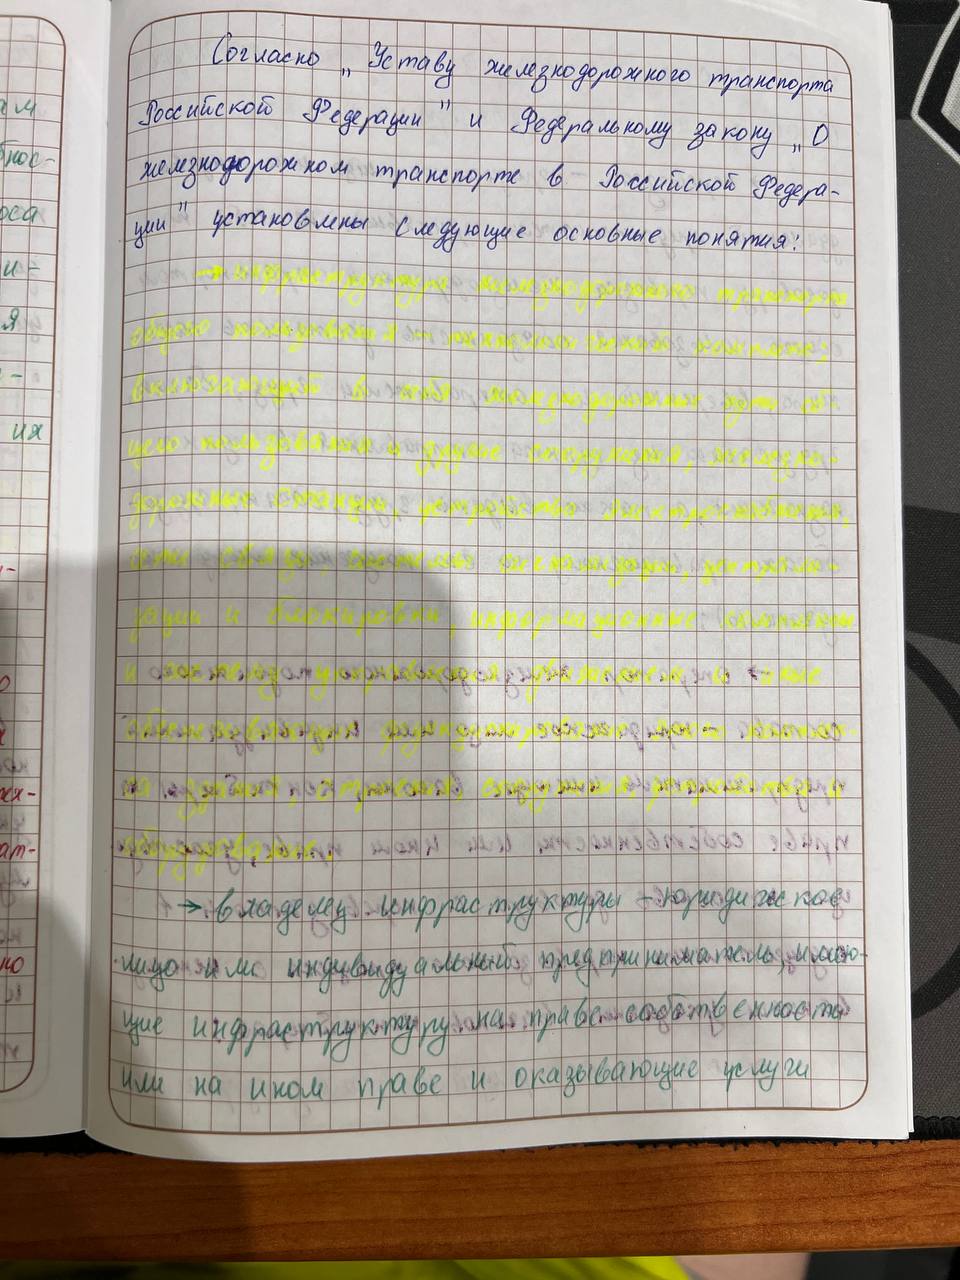 Согласно „Уставу железнодорожного транспорта
Российской Федерации" и Федеральному закону „О
железнодорожном транспорте в Российской Федера-
ции" установлены следующие основные понятия:
→ инфраструктура железнодорожного транспорта
общего пользования технологический комплекс,
включающий в себя железнодорожные пути об-
щего пользования и другие сооружения, железно-
дорожные станции, устройства электроснабжения,
сети связи, системы сигнализации, централи-
зации и блокировки, информационные комплексы
и систему управления движением и иные
обеспечивающие функционирование
здания, строения, сооружения, устройства и
оборудование.
→ владелец инфраструктуры - юридическое
лицо или индивидуальный предприниматель, имею-
щие инфраструктуру на праве собственности
или на ином праве и оказывающие услуги
ам
бнос-
оса
и-
я
их